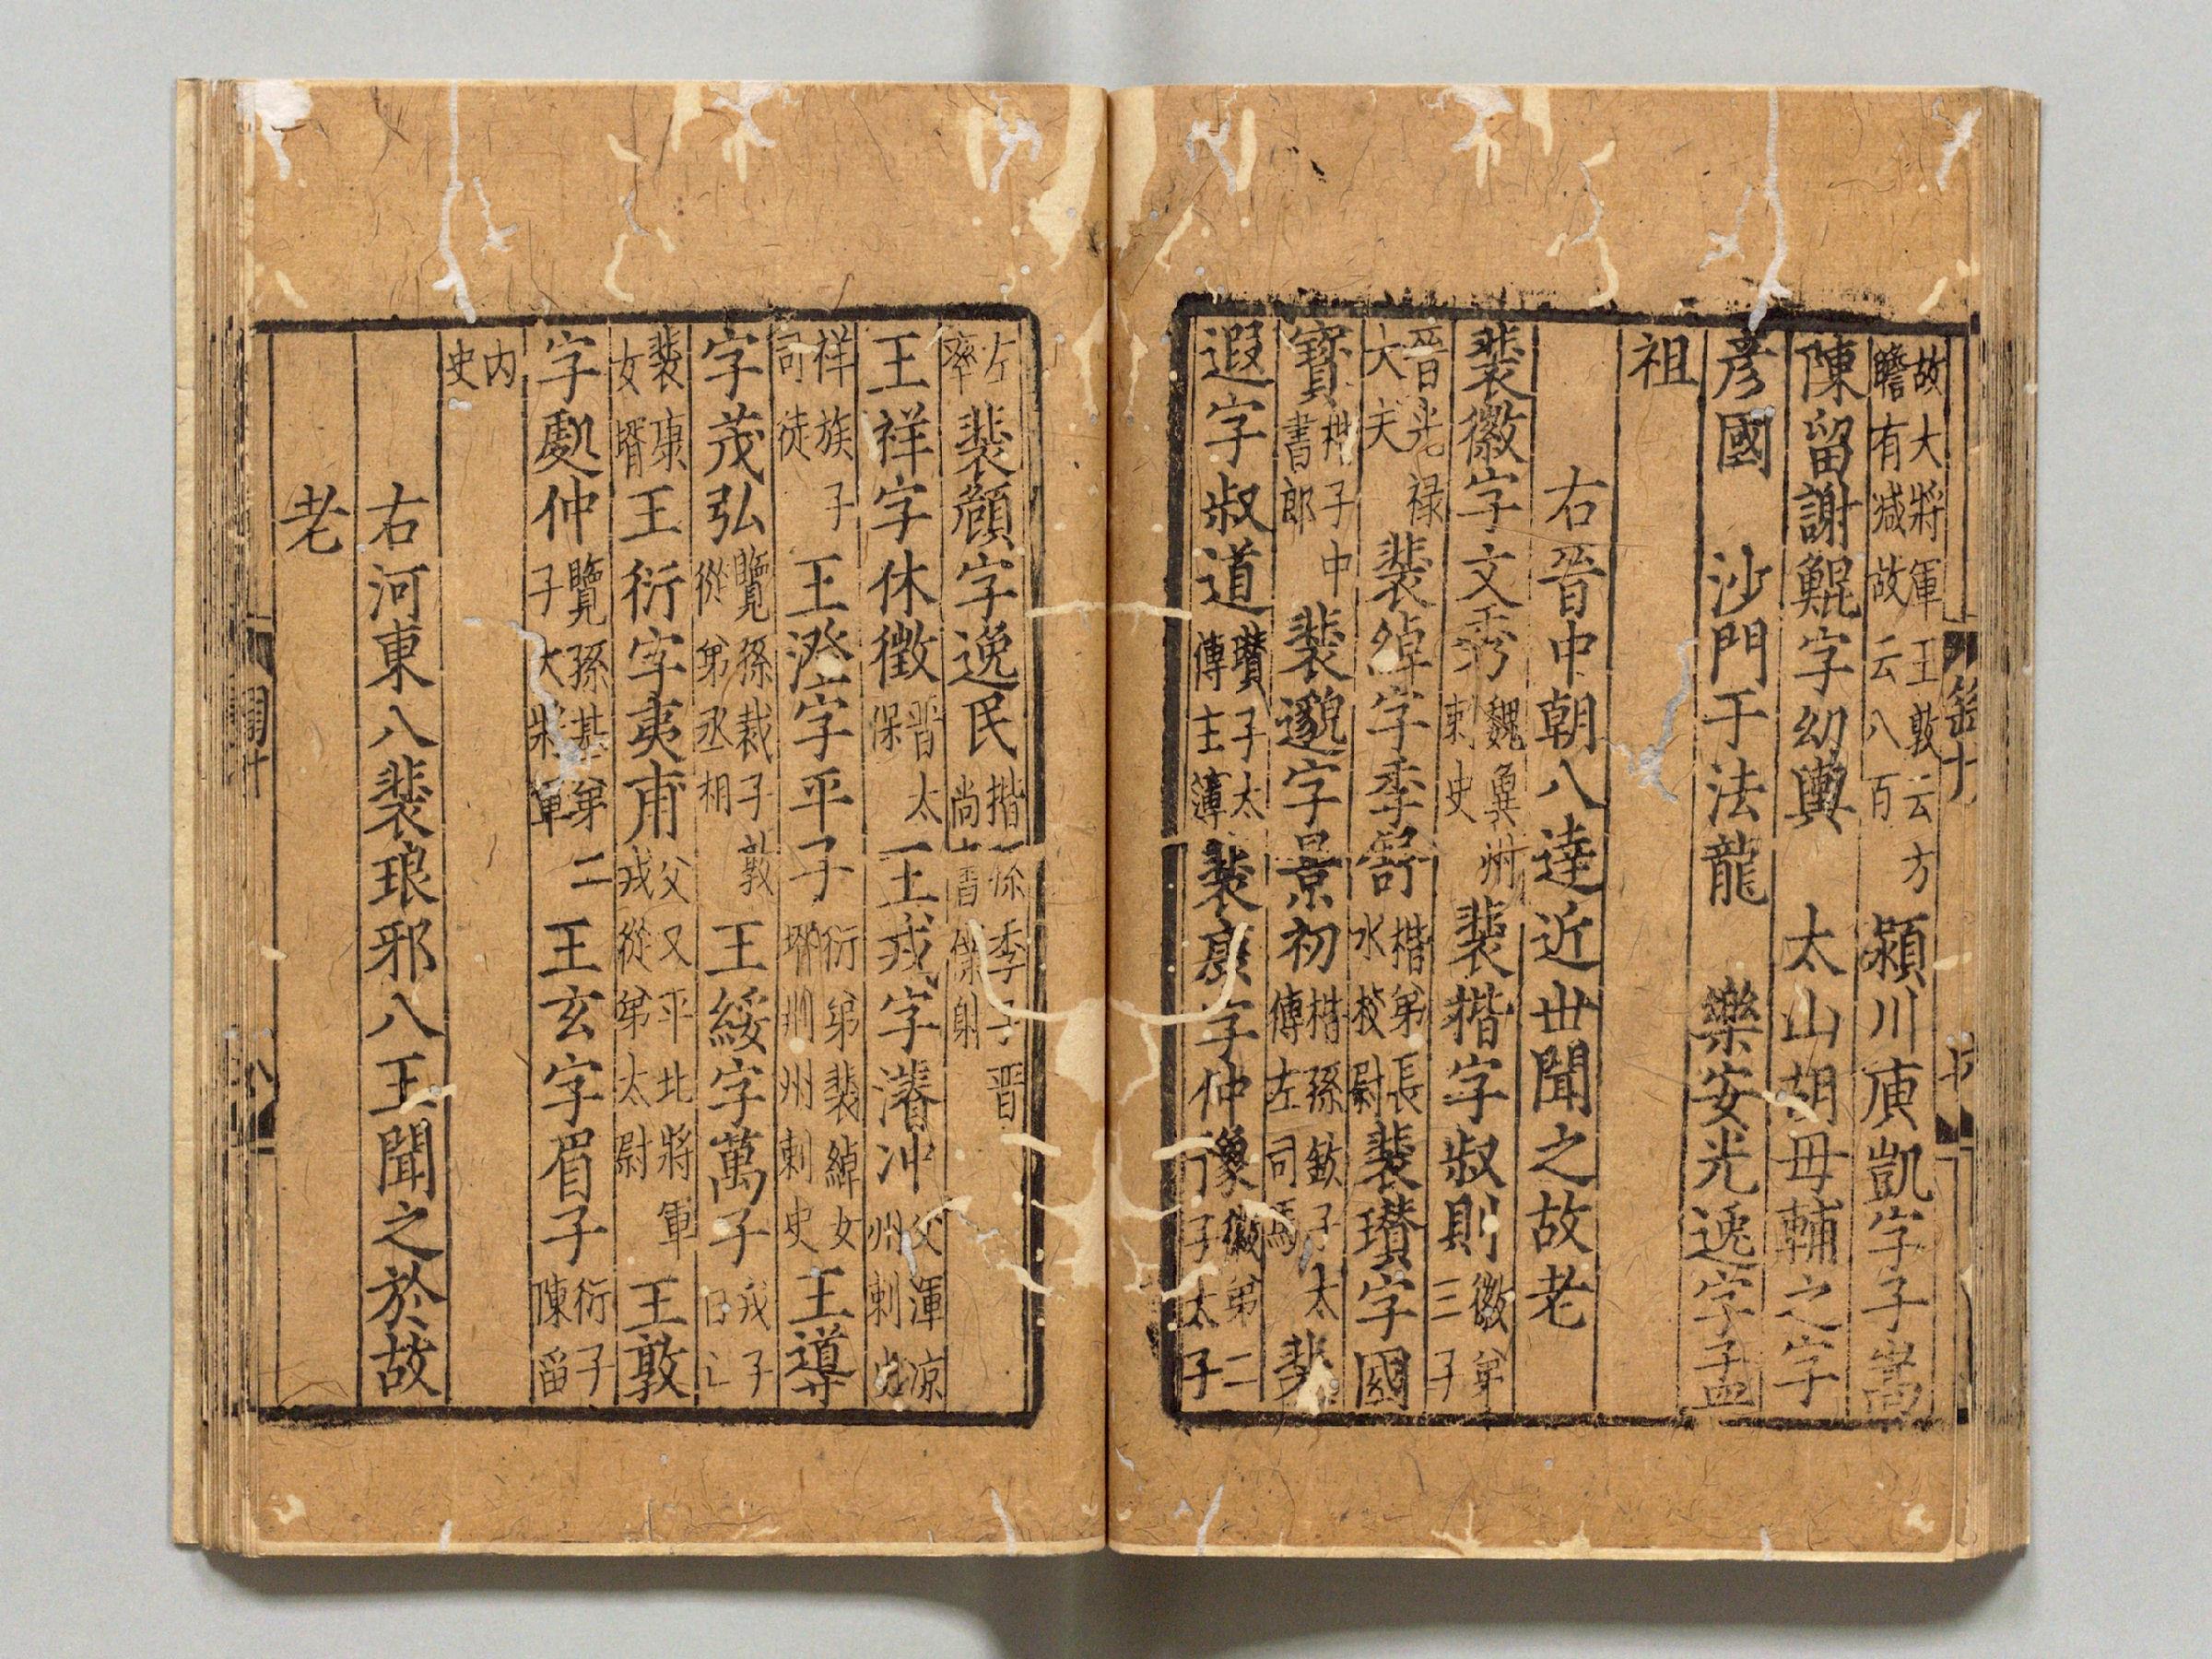 故大將軍王敦云方瞻有減故云八百　潁川庾凱字子嵩
陳留謝鯤字幼輿　太山胡毋輔之字
彥國　沙門于法龍　樂安光逸字孟
祖
右晉中朝八達近世聞之故老
裴徽字文秀魏兾州刺史　裴楷字叔則徽弟三子
晉光禄大夫　裴綽字季舒楷弟長水校尉　裴瓚字國
寶楷子中書郎　裴邈字景初楷孫欽子太傅左司馬　裴
遐字叔道瓚子太傅主薄　裴康字仲豫徽弟二子太子
左率　裴頠字逸民楷孫季子晉尚書僕射
王祥字休徵晉太保　王戎字濬沖父渾凉州刺史
祥族子司徒　王澄字平子衍弟裴綽女壻荆州刺史　王導
字茂弘覽孫裁子敦從弟丞相　王綏字萬子戎子
裴康女壻　王衍字夷甫父乂平北將軍戎從弟太尉　王敦
字處仲覽孫基弟二子大將軍　王玄字眉子衍子陳留
内史
右河東八裴琅邪八王聞之於故
老